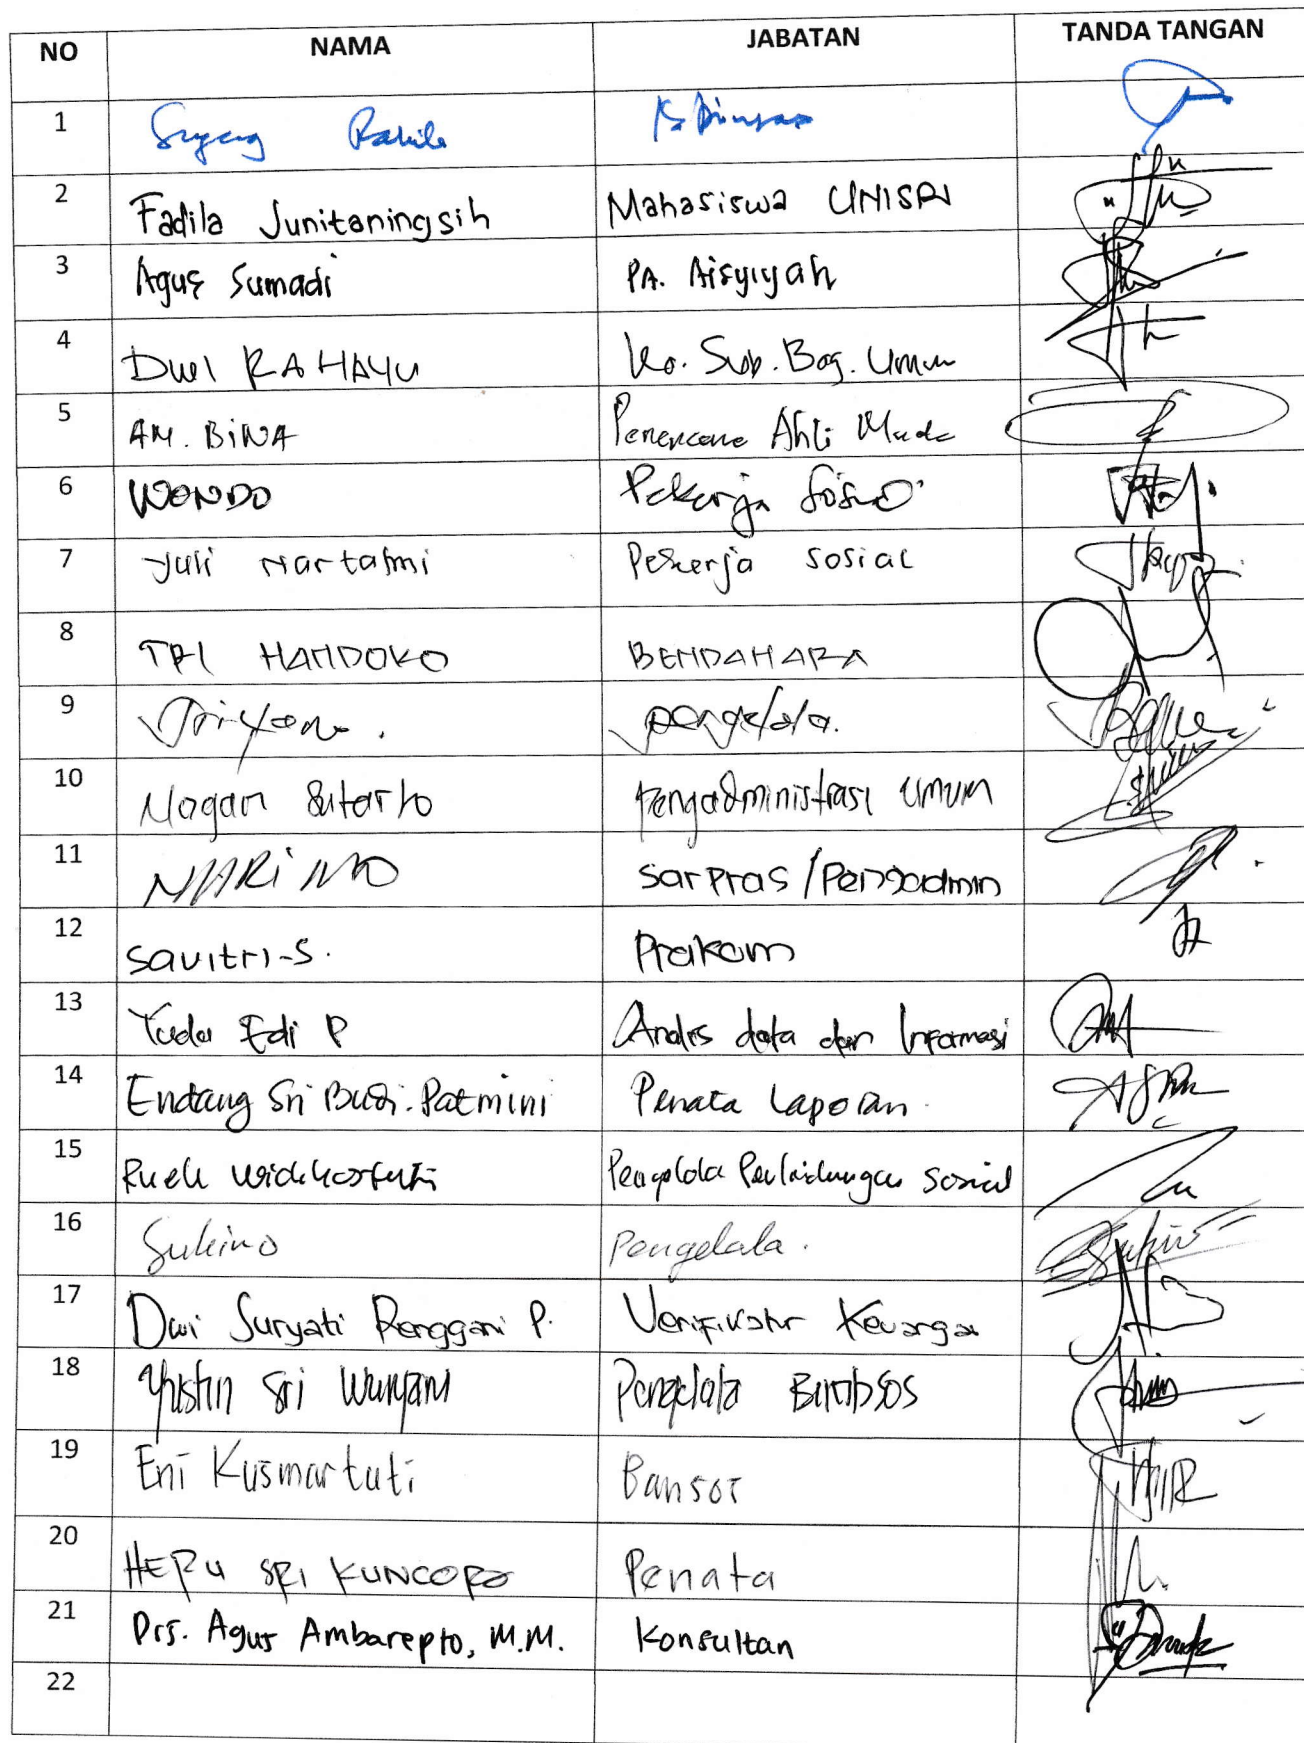 NO NAMA JABATAN TANDA TANGAN
1
2 Fadila Junitaningsih Mahasiswa UNISRI
3 Agus Sumadi PA. Aisyiyah
4 DWI RAHAYU Ka. Sub. Bag. Umum
5 AM. BINA Perencana Ahli Muda
6 WONDO Pekerja Sosial
7 Yuli Hartatmi Pekerja Sosial
8 TRI HANDOKO BENDAHARA
9 Triyono. pengelola.
10 Nogan Sutarto Pengadministrasi Umum
11 NARIMO Sarpras / Pengadmin
12 Savitri-S. Prakom
13 Yuda Edi P Analis data dan Informasi
14 Endang Sri Budi. Patmini Penata Laporan.
15 Pengelola Perlindungan Sosial
16 Sukino Pengelola.
17 Dwi Suryati Renggani P. Verifikator Keuangan
18 Yustin Sri Wuryani Pengelola Bimbsos
19 Eni Kusmartuti Bansos
20 HERU SRI KUNCORO Penata
21 Drs. Agus Ambarepto, M.M. Konsultan
22